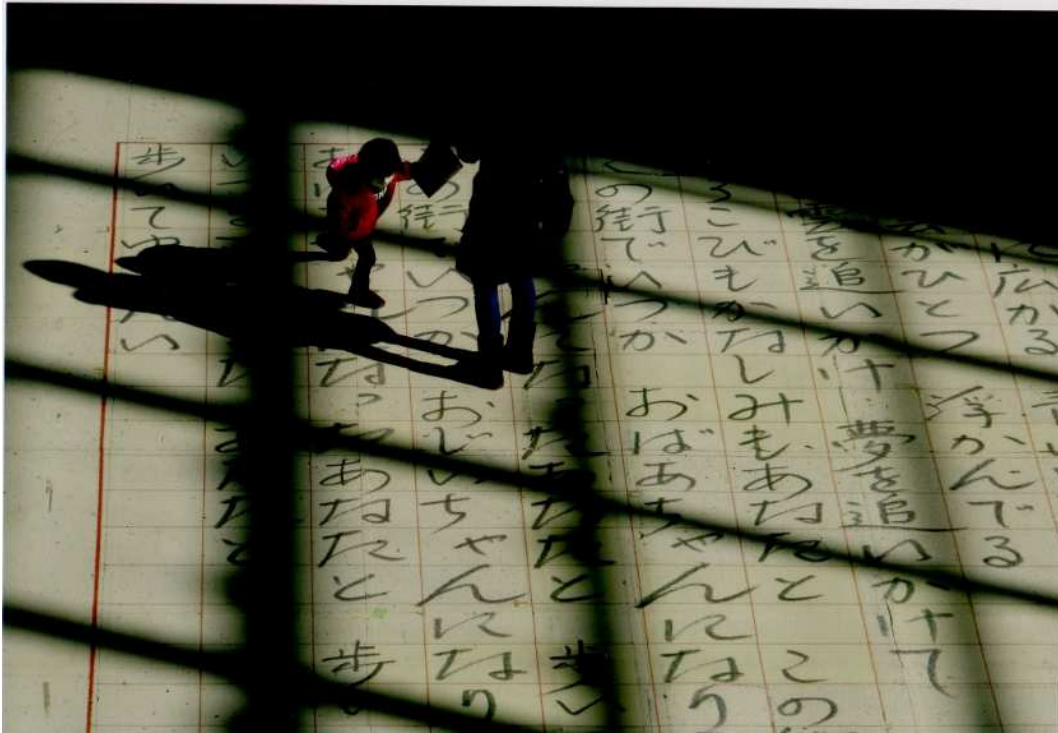 に広がる
がひとつ　浮かんでる
雲を追いかけ　夢を追いかけて
ろこびもかなしみも　あなたと　この
この街でいつか　おばあちゃんになり
あなたと　歩い
の街でいつか　おじいちゃんになり
なった　あなたと　歩い
あなたと
歩いてゆきたい